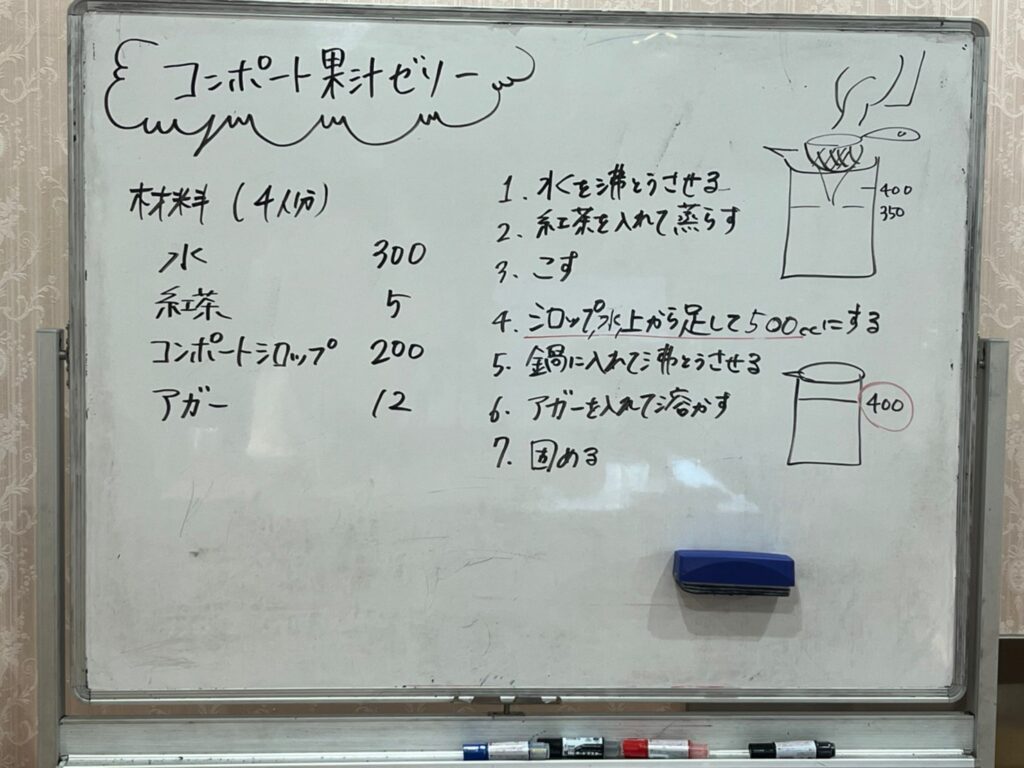 コンポート果汁ゼリー
材料(4人分)
水 300
紅茶 5
コンポートシロップ 200
アガー 12
1. 水を沸とうさせる
2. 紅茶を入れて蒸らす
3. こす
4. シロップ,水,上から足して500ccにする
5. 鍋に入れて沸とうさせる
6. アガーを入れて溶かす
7. 固める
400
350
400